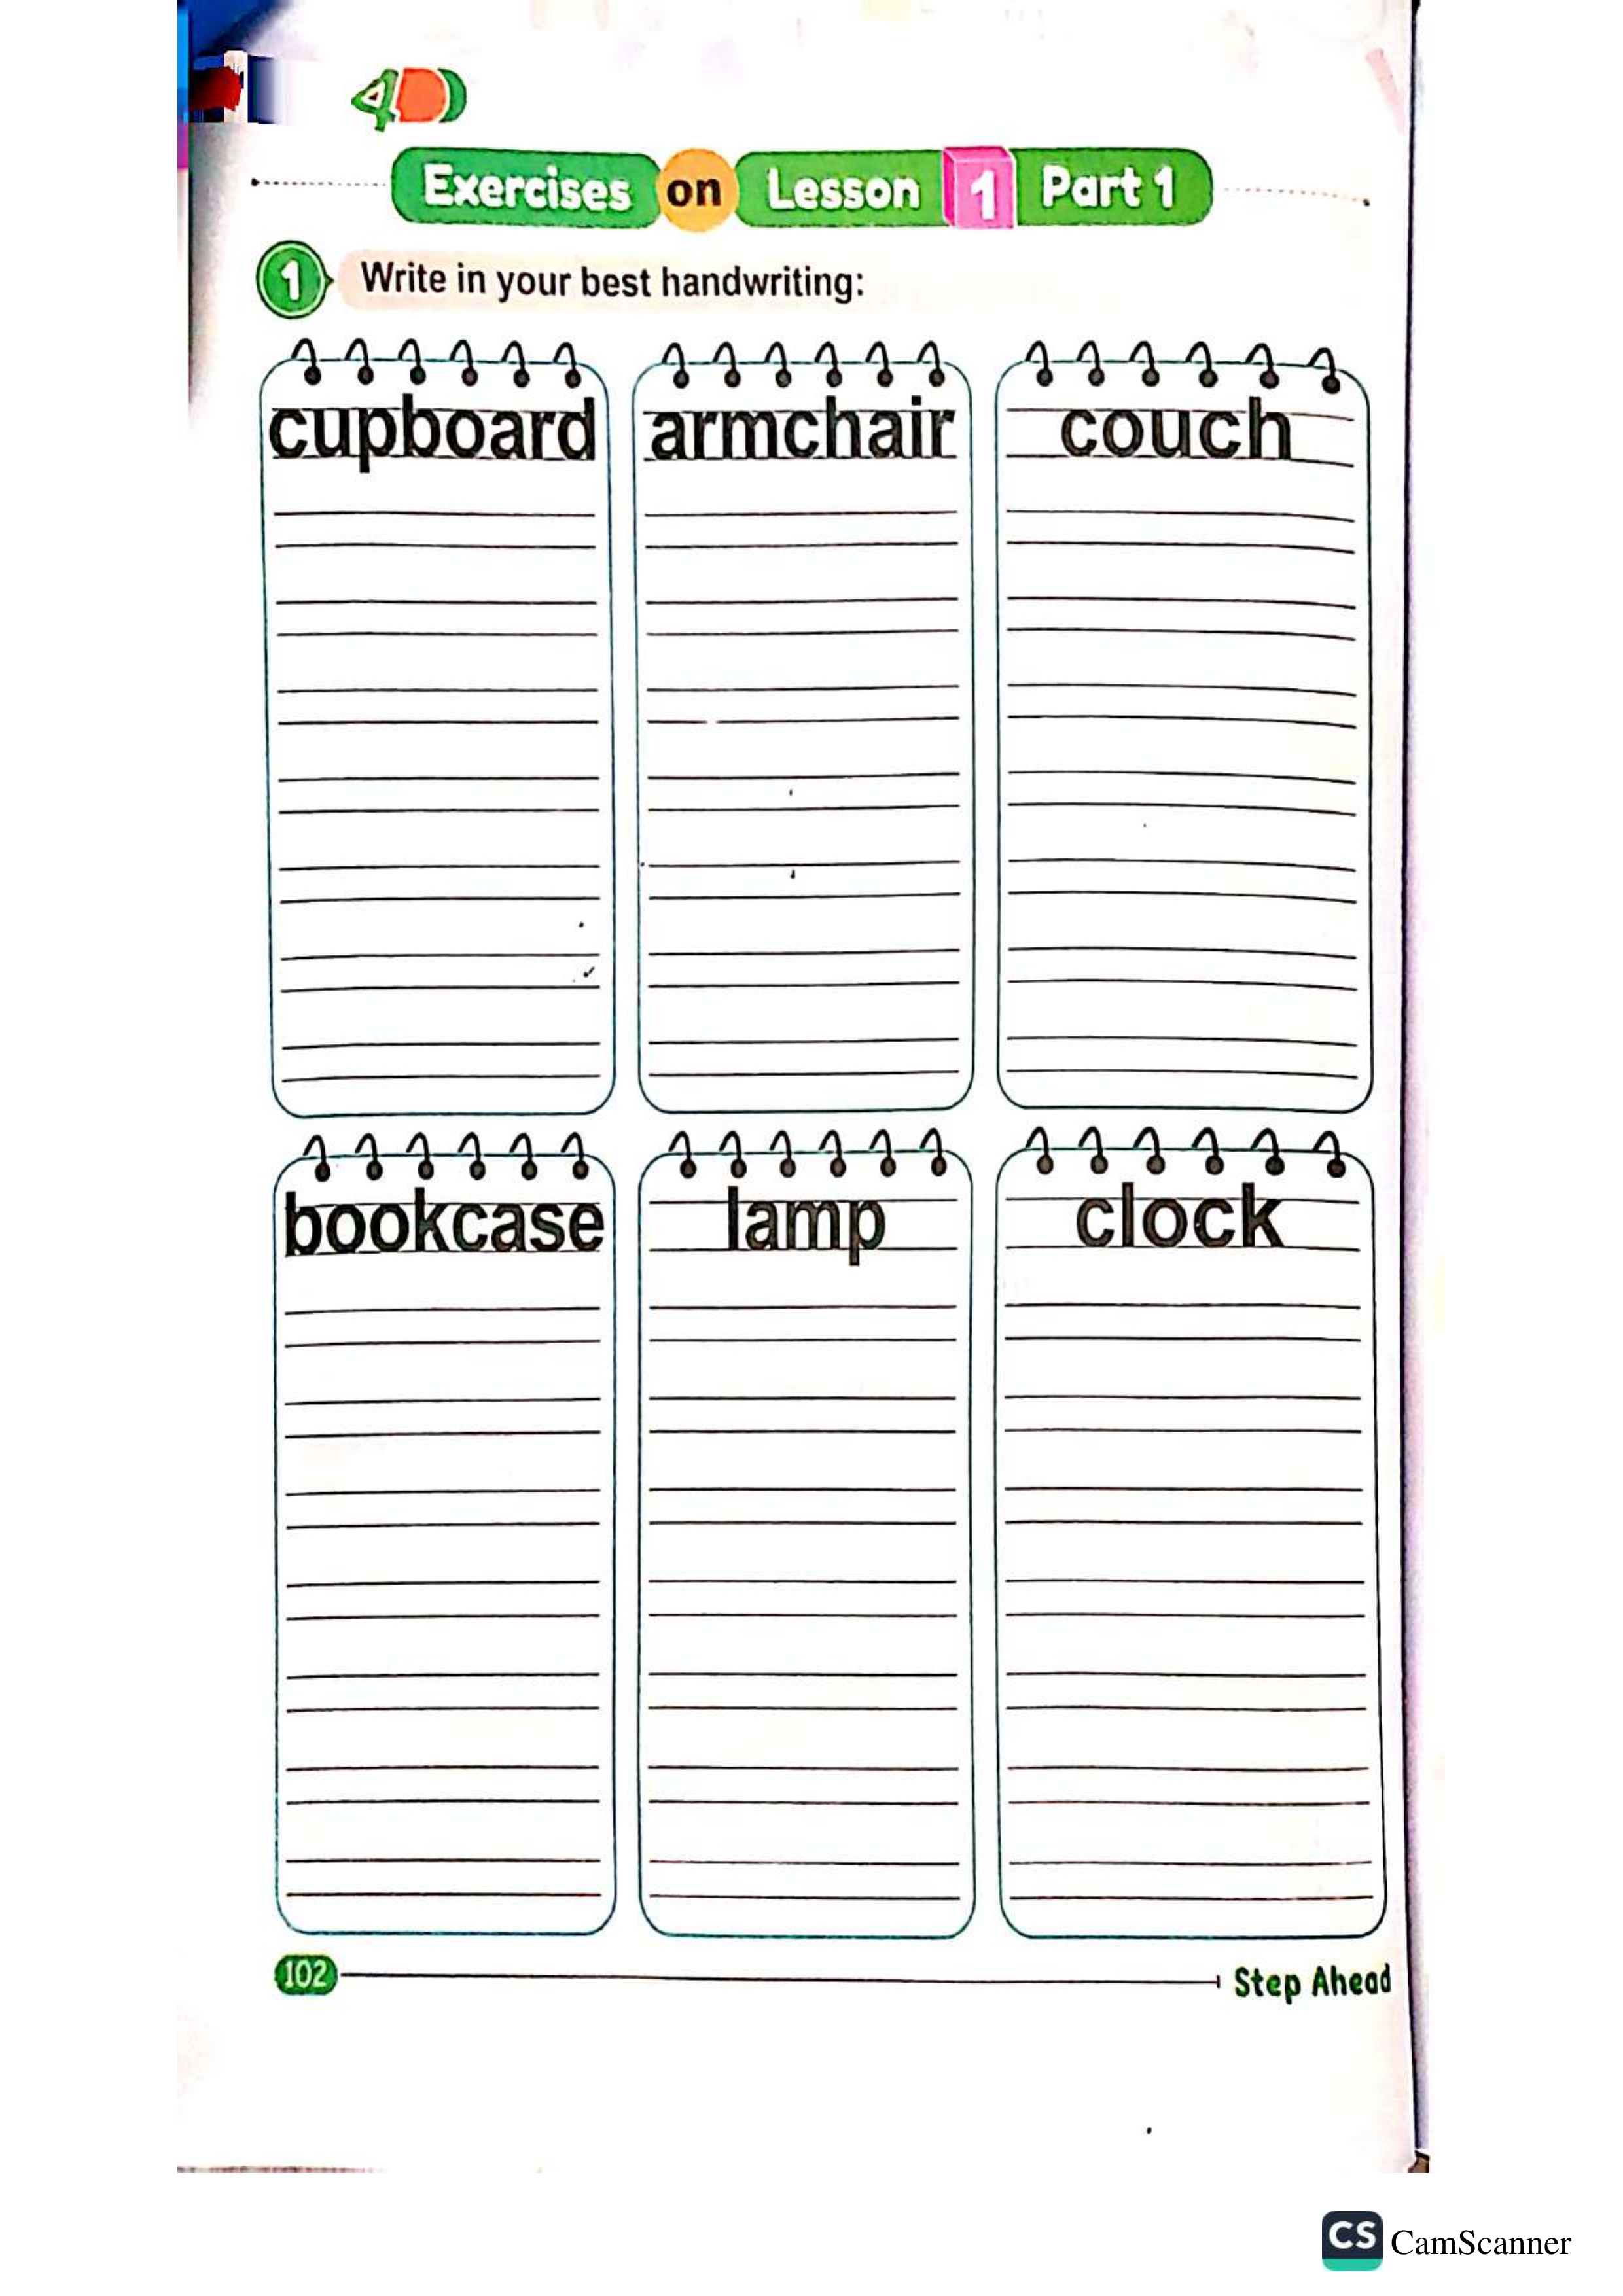 4
Exercises on Lesson 1 Part 1
1 Write in your best handwriting:
cupboard armchair couch
bookcase lamp clock
102 Step Ahead
CS CamScanner